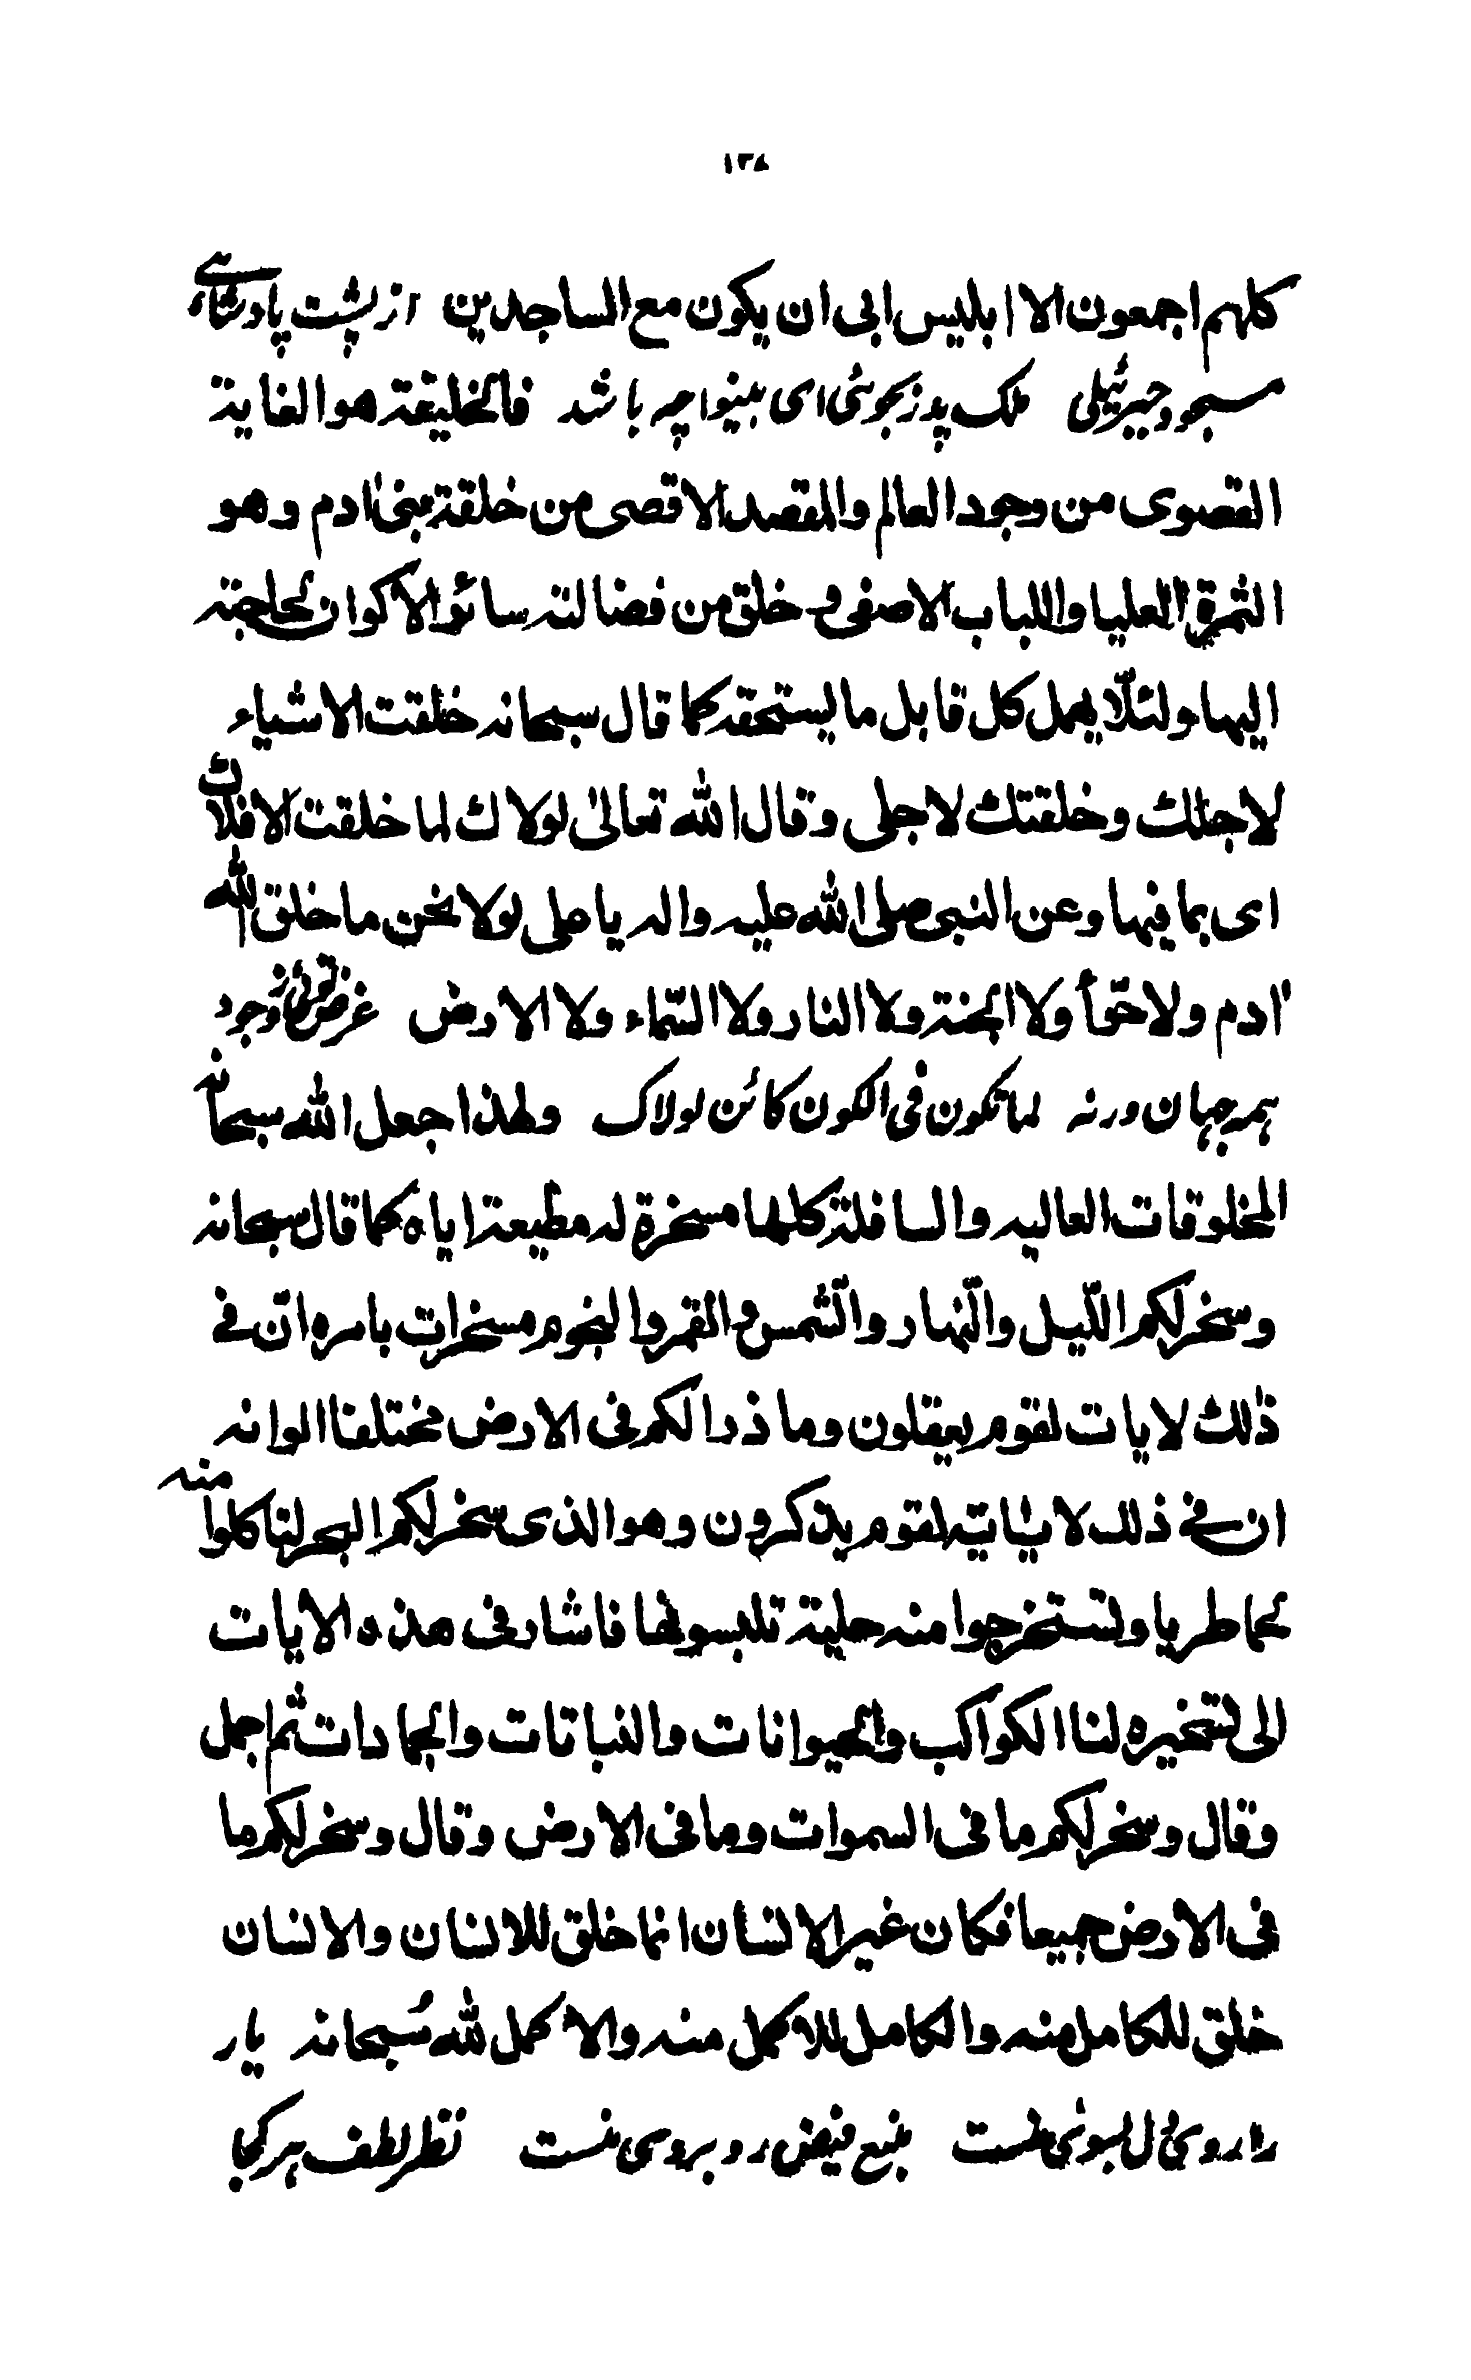 ١٣٨
كلهم اجمعون الا ابليس ابى ان يكون مع الساجدين از پشت پادشاهى
مسجود جبرئيلى ملك پدر بجوئى اى بينوا چه باشد فالخليفة هو الغاية
القصوى من وجود العالم والمقصد الاقصى من خلقة بنى ادم وهو
الثمرة العليا واللباب الاصفى و خلق من فضالته سائر الاكوان لحاجته
اليها ولئلّا يهمل كل قابل ما يستحقه كما قال سبحانه خلقت الاشياء
لاجلك وخلقتك لاجلى وقال الله تعالى لولاك لما خلقت الافلاك
اى بما فيها وعن النبى صلى الله عليه واله يا على لولا نحن ما خلق الله
ادم ولا حوّا ولا الجنة ولا النار ولا السّماء ولا الارض غرض توئى ز وجود
همه جهان ورنه لما تكون فى الكون كائن لولاك ولهذا جعل الله سبحانه
المخلوقات العاليه والسافلة كلها مسخرة له مطيعة اياه كما قال سبحانه
وسخر لكم اللّيل والنّهار والشّمس والقمر والنجوم مسخرات بامره انّ فى
ذلك لايات لقوم يعقلون وما ذرا لكم فى الارض مختلفا الوانه
ان فى ذلك لايات لقوم يذكرون وهو الذى سخر لكم البحر لتاكلوا منه
لحما طريا ولتستخرجوا منه حلية تلبسونها فاشار فى هذه الايات
الى تسخيره لنا الكواكب والحيوانات والنباتات والجمادات ثم اجمل
وقال وسخر لكم ما فى السموات وما فى الارض وقال وسخر لكم ما
فى الارض جميعا فكان غير الانسان انما خلق للانسان والانسان
خلق للكامل منه والكامل للاكمل منه والاكمل لله سُبحانه يار
را روى دل بسوى منست منبع فيض رو بروى منست نظر لطف هر كجا